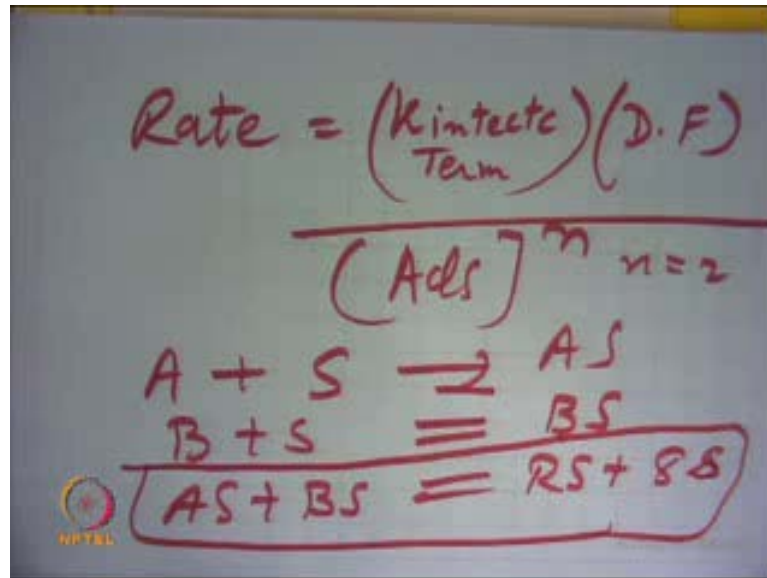 Rate = (Kintectc Term) (D.F)
(Ads]^n n=2
A + S ⇌ AS
B + S ≡ BS
AS + BS = RS + SS
NPTEL